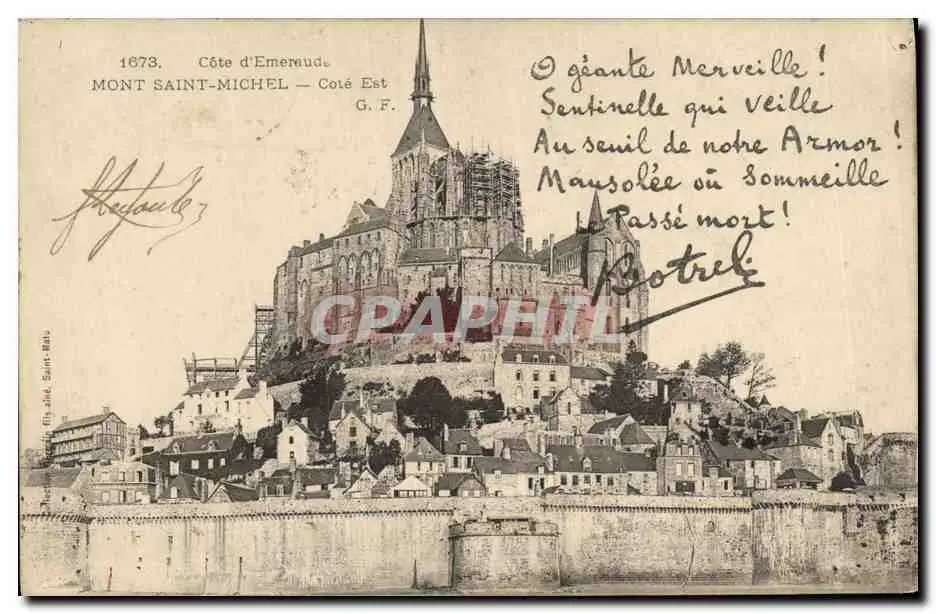 1673. Côte d'Emeraude
MONT SAINT-MICHEL — Coté Est
G. F.
O géante Merveille !
Sentinelle qui veille
Au seuil de notre Armor !
Mausolée où Sommeille
le Passé mort !
Botrel
fils aîné, Saint-Malo
CPAPHIL